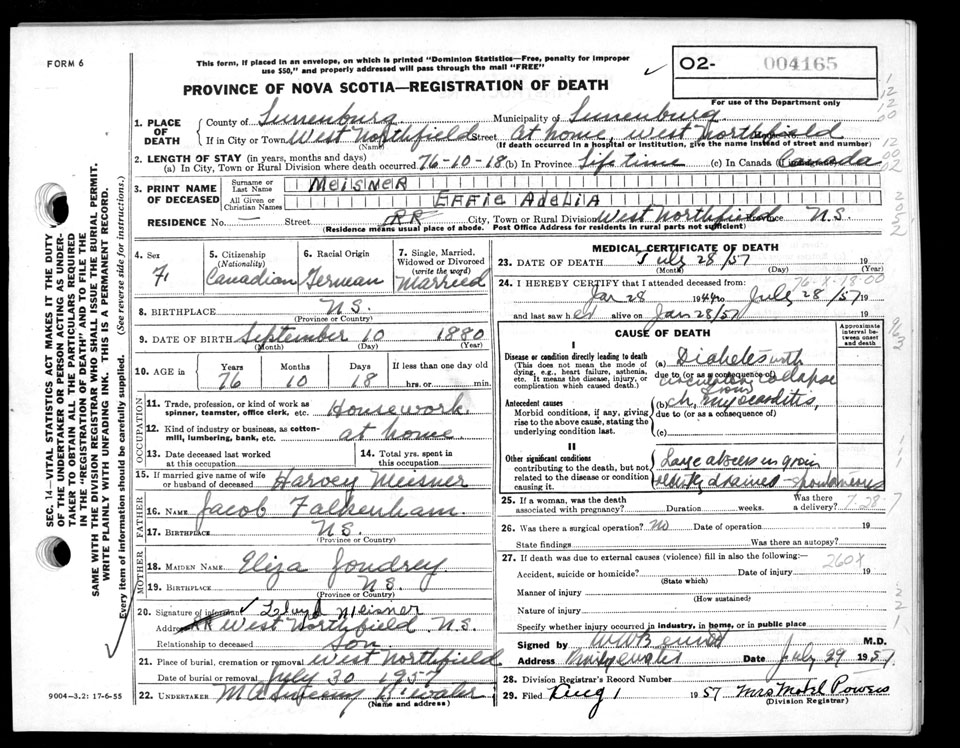 FORM 6
This form, if placed in an envelope, on which is printed "Dominion Statistics—Free, penalty for improper
use $50," and properly addressed will pass through the mail "FREE"
✓
O2- 004165
For use of the Department only
PROVINCE OF NOVA SCOTIA—REGISTRATION OF DEATH
1. PLACE OF DEATH
County of Lunenburg Municipality of Lunenburg
If in City or Town West Northfield Street At home, West Northfield
(Name) (If death occurred in a hospital or institution, give name instead of street and number)
2. LENGTH OF STAY (in years, months and days)
(a) In City, Town or Rural Division where death occurred 76-10-18 (b) In Province Life time (c) In Canada Canada
3. PRINT NAME OF DECEASED
Surname or Last Name MEISNER
All Given or Christian Names EFFIE ADELIA
RESIDENCE No. — Street RR City, Town or Rural Division West Northfield N.S.
(Residence means usual place of abode. Post Office Address for residents in rural parts not sufficient)
4. Sex F.
5. Citizenship (Nationality) Canadian
6. Racial Origin German
7. Single, Married, Widowed or Divorced (write the word) Married
8. BIRTHPLACE N.S.
(Province or Country)
9. DATE OF BIRTH September 10 1880
(Month) (Day) (Year)
10. AGE in Years Months Days If less than one day old
76 10 18 hrs. or min.
OCCUPATION
11. Trade, profession, or kind of work as spinner, teamster, office clerk, etc. Housework
12. Kind of industry or business, as cotton-mill, lumbering, bank, etc. at home
13. Date deceased last worked at this occupation
14. Total yrs. spent in this occupation
15. If married give name of wife or husband of deceased Harvey Meisner
FATHER
16. NAME Jacob Falkenham
17. BIRTHPLACE N.S.
(Province or Country)
MOTHER
18. MAIDEN NAME Eliza Joudrey
19. BIRTHPLACE N.S.
(Province or Country)
20. Signature of informant ✓ Meisner
Address West Northfield N.S.
Relationship to deceased son
21. Place of burial, cremation or removal West Northfield
Date of burial or removal July 30 1957
22. UNDERTAKER
(Name and Address)
9004—3.2: 17-6-55
MEDICAL CERTIFICATE OF DEATH
23. DATE OF DEATH July 28/57 19
(Month) (Day) (Year)
76-X-18-00
24. I HEREBY CERTIFY that I attended deceased from:
Jan 28 1944 to July 28/57 19
and last saw her alive on Jan 28/57 19
CAUSE OF DEATH
Approximate interval between onset and death
I
Disease or condition directly leading to death
(This does not mean the mode of dying, e.g., heart failure, asthenia, etc. It means the disease, injury, or complication which caused death.)
(a) Diabetes with
due to (or as a consequence of)
collapse
from
Antecedent causes
Morbid conditions, if any, giving rise to the above cause, stating the underlying condition last.
(b) ch. myocarditis,
due to (or as a consequence of)
(c)
II
Other significant conditions
contributing to the death, but not related to the disease or condition causing it.
Large abscess in groin
drained spontaneous
25. If a woman, was the death associated with pregnancy? Duration weeks. Was there a delivery?
7-28-7
26. Was there a surgical operation? No Date of operation 19
State findings Was there an autopsy?
27. If death was due to external causes (violence) fill in also the following:—
260X
Accident, suicide or homicide? Date of injury 19
(State which)
Manner of injury
(How sustained)
Nature of injury
Specify whether injury occurred in industry, in home, or in public place
Signed by M.D.
Address Date July 29 1957
28. Division Registrar's Record Number
29. Filed Aug 1 1957 Mrs Powers
(Division Registrar)
SEC. 14—VITAL STATISTICS ACT MAKES IT THE DUTY
OF THE UNDERTAKER OR PERSON ACTING AS UNDER-
TAKER TO OBTAIN ALL THE PARTICULARS REQUIRED
IN THE "REGISTRATION OF DEATH" AND TO FILE THE
SAME WITH THE DIVISION REGISTRAR WHO SHALL ISSUE THE BURIAL PERMIT.
WRITE PLAINLY WITH UNFADING INK. THIS IS A PERMANENT RECORD.
Every item of information should be carefully supplied. (See reverse side for instructions.)